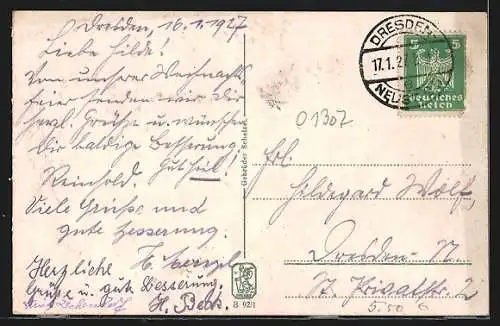 Dresden, 16.1.1927
Liebe Hilde!
Von unsrer Weihnachts-
feier senden wir Dir
herzl. Grüße u. wünschen
Dir baldige Besserung.
Gut heil!
Reinhold.
Viele Grüsse und
gute Besserung.
H.
Herzliche
Grüße u. gute Besserung.
H. Beck.
Gebrüder
B 62/1
DRESDEN
17.1.27
NEUST
5 5
Deutsches
Reich
01307
Frl.
Hildegard Wolf
Dresden-N.
5.50